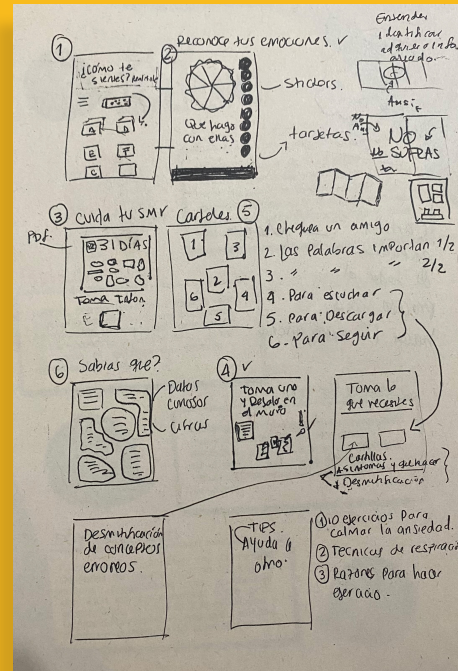 1
¿Cómo te sientes?
A
D
E
F
C
2
Reconoce tus emociones. ✓
Que hago con ellas
Stickers.
tarjetas.
Entender
identificar
NO
SUFRAS
3 cuida tu SM
PDF.
31 DÍAS
Toma
Carteles. 5
1
3
2
6
4
5
1. Chequea un amigo
2. las palabras importan 1/2
3. " " " 2/2
4. Para escuchar
5. Para Descargar
6. Para seguir
6 Sabias que?
Datos
curiosos
cifras
4 ✓
Toma uno
y Pegalo en
el muro
Toma lo
que necesites
Cartillas.
Sintomas y que hacer
Desmitificación
Desmitificación
de conceptos
erroneos.
TIPS.
Ayuda a
otro.
1 10 ejercicios Para
calmar la ansiedad.
2 Tecnicas de respiración
3 Razones Para hacer